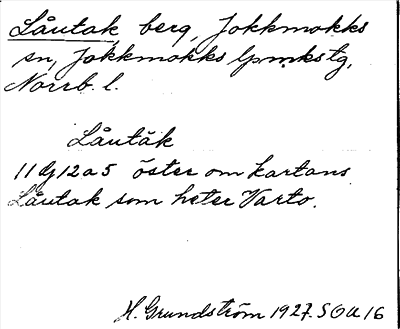 Låutak, berg, Jokkmokks
sn, Jokkmokks lpmkstg,
Norrb. l.
Låutăk
11 Y 12 a 5 öster om kartans
Låutak som heter Varto.
H. Grundström 1927. SOU 16